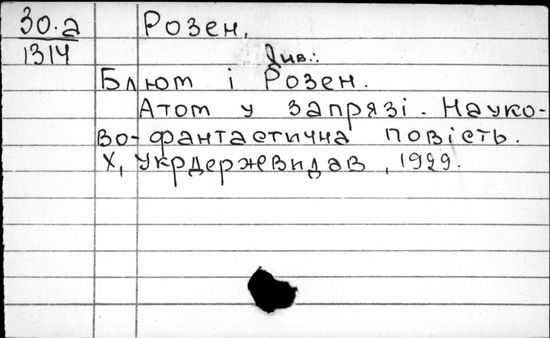 30.а
1314
Розен,
Див.:
Блют і Розен.
Атом у запрязі. Науко-
во-фантастична повість.
Х, Укрдержвидав, 1929.